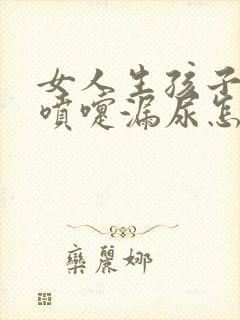 女人生孩子
噴嚏漏尿怎
欒麗娜